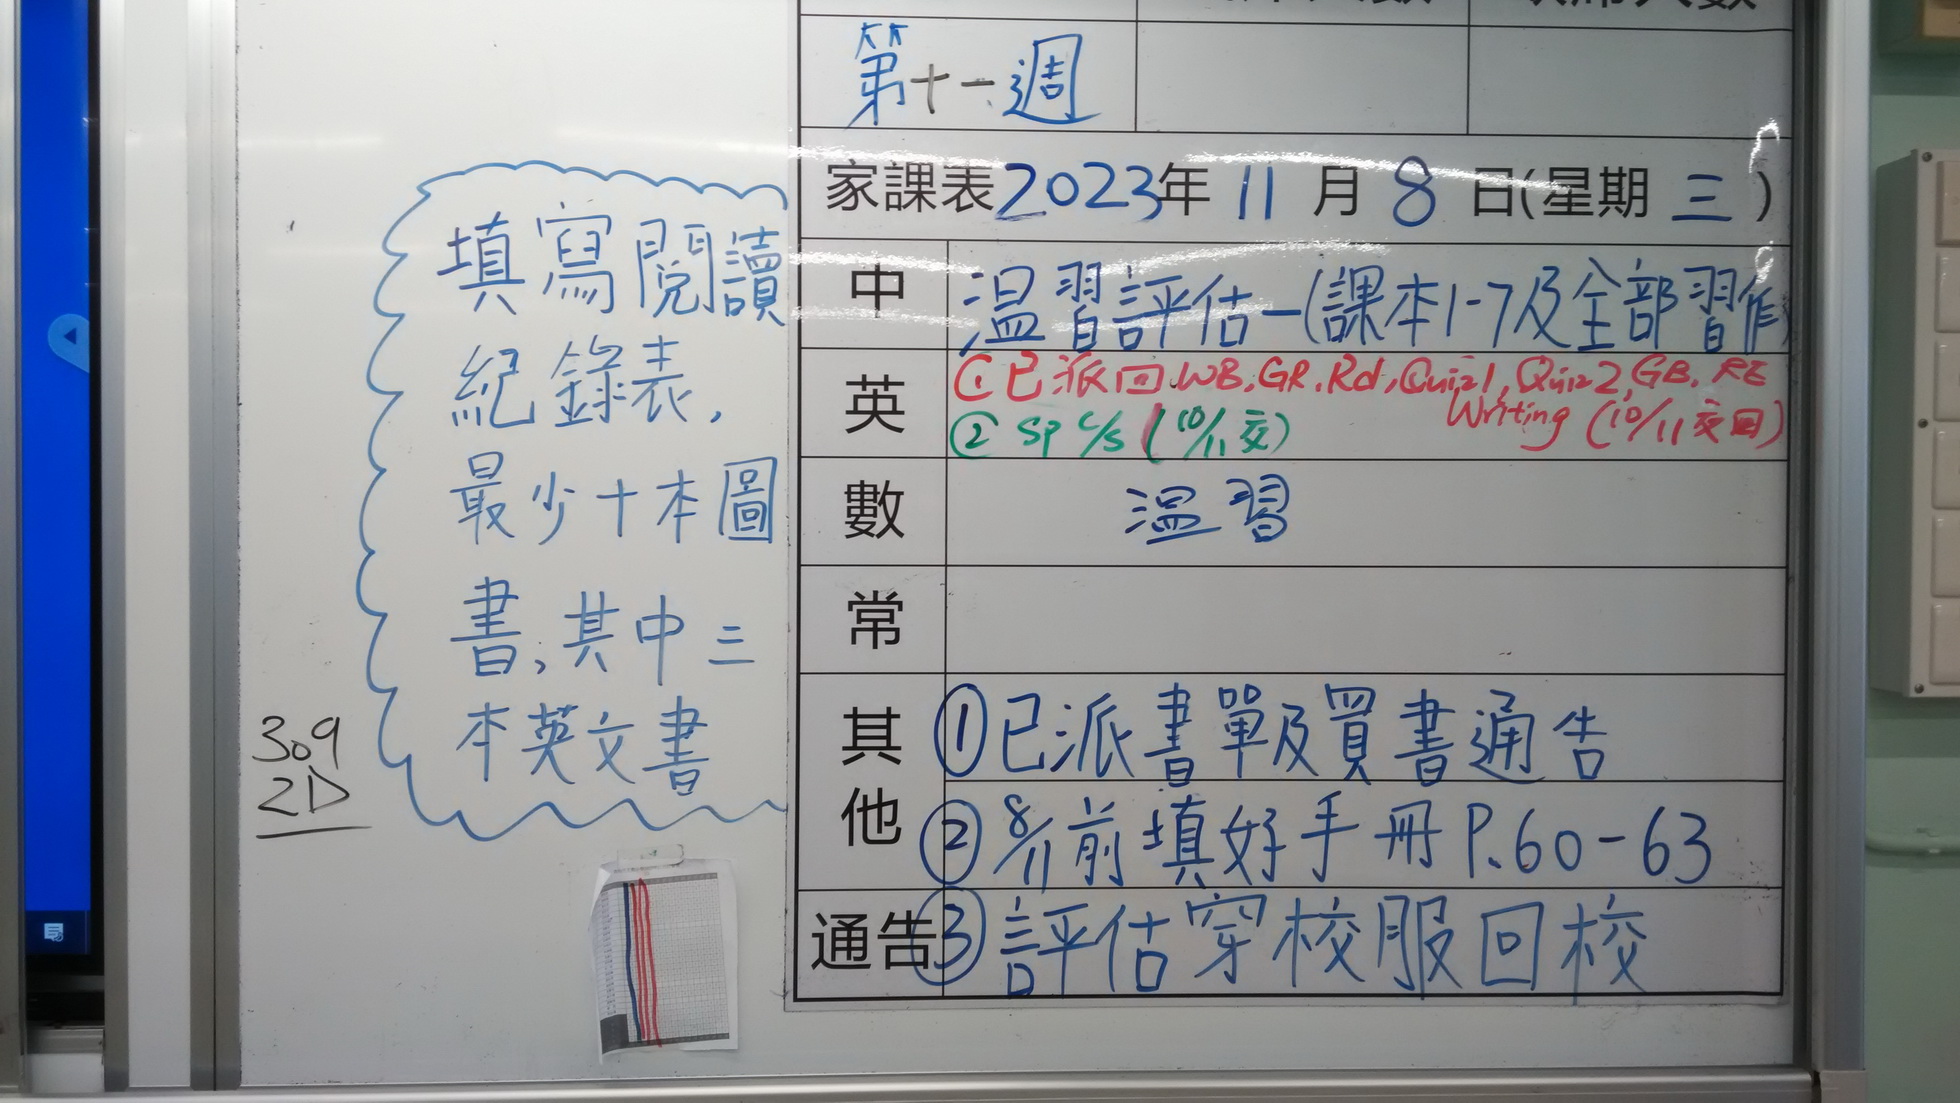 第十一週
家課表2023年11月8日(星期三)
中 温習評估一(課本1-7及全部習作)
英 ①已派回WB,GR,Rd,Quiz1,Quiz2,GB,RE
Writing (10/11交回)
②SP C/S (10/11交)
數 温習
常
其他 ①已派書單及買書通告
②8/11前填好手冊P.60-63
通告 ③評估穿校服回校
填寫閱讀
紀錄表,
最少十本圖
書,其中三
本英文書
309
2D